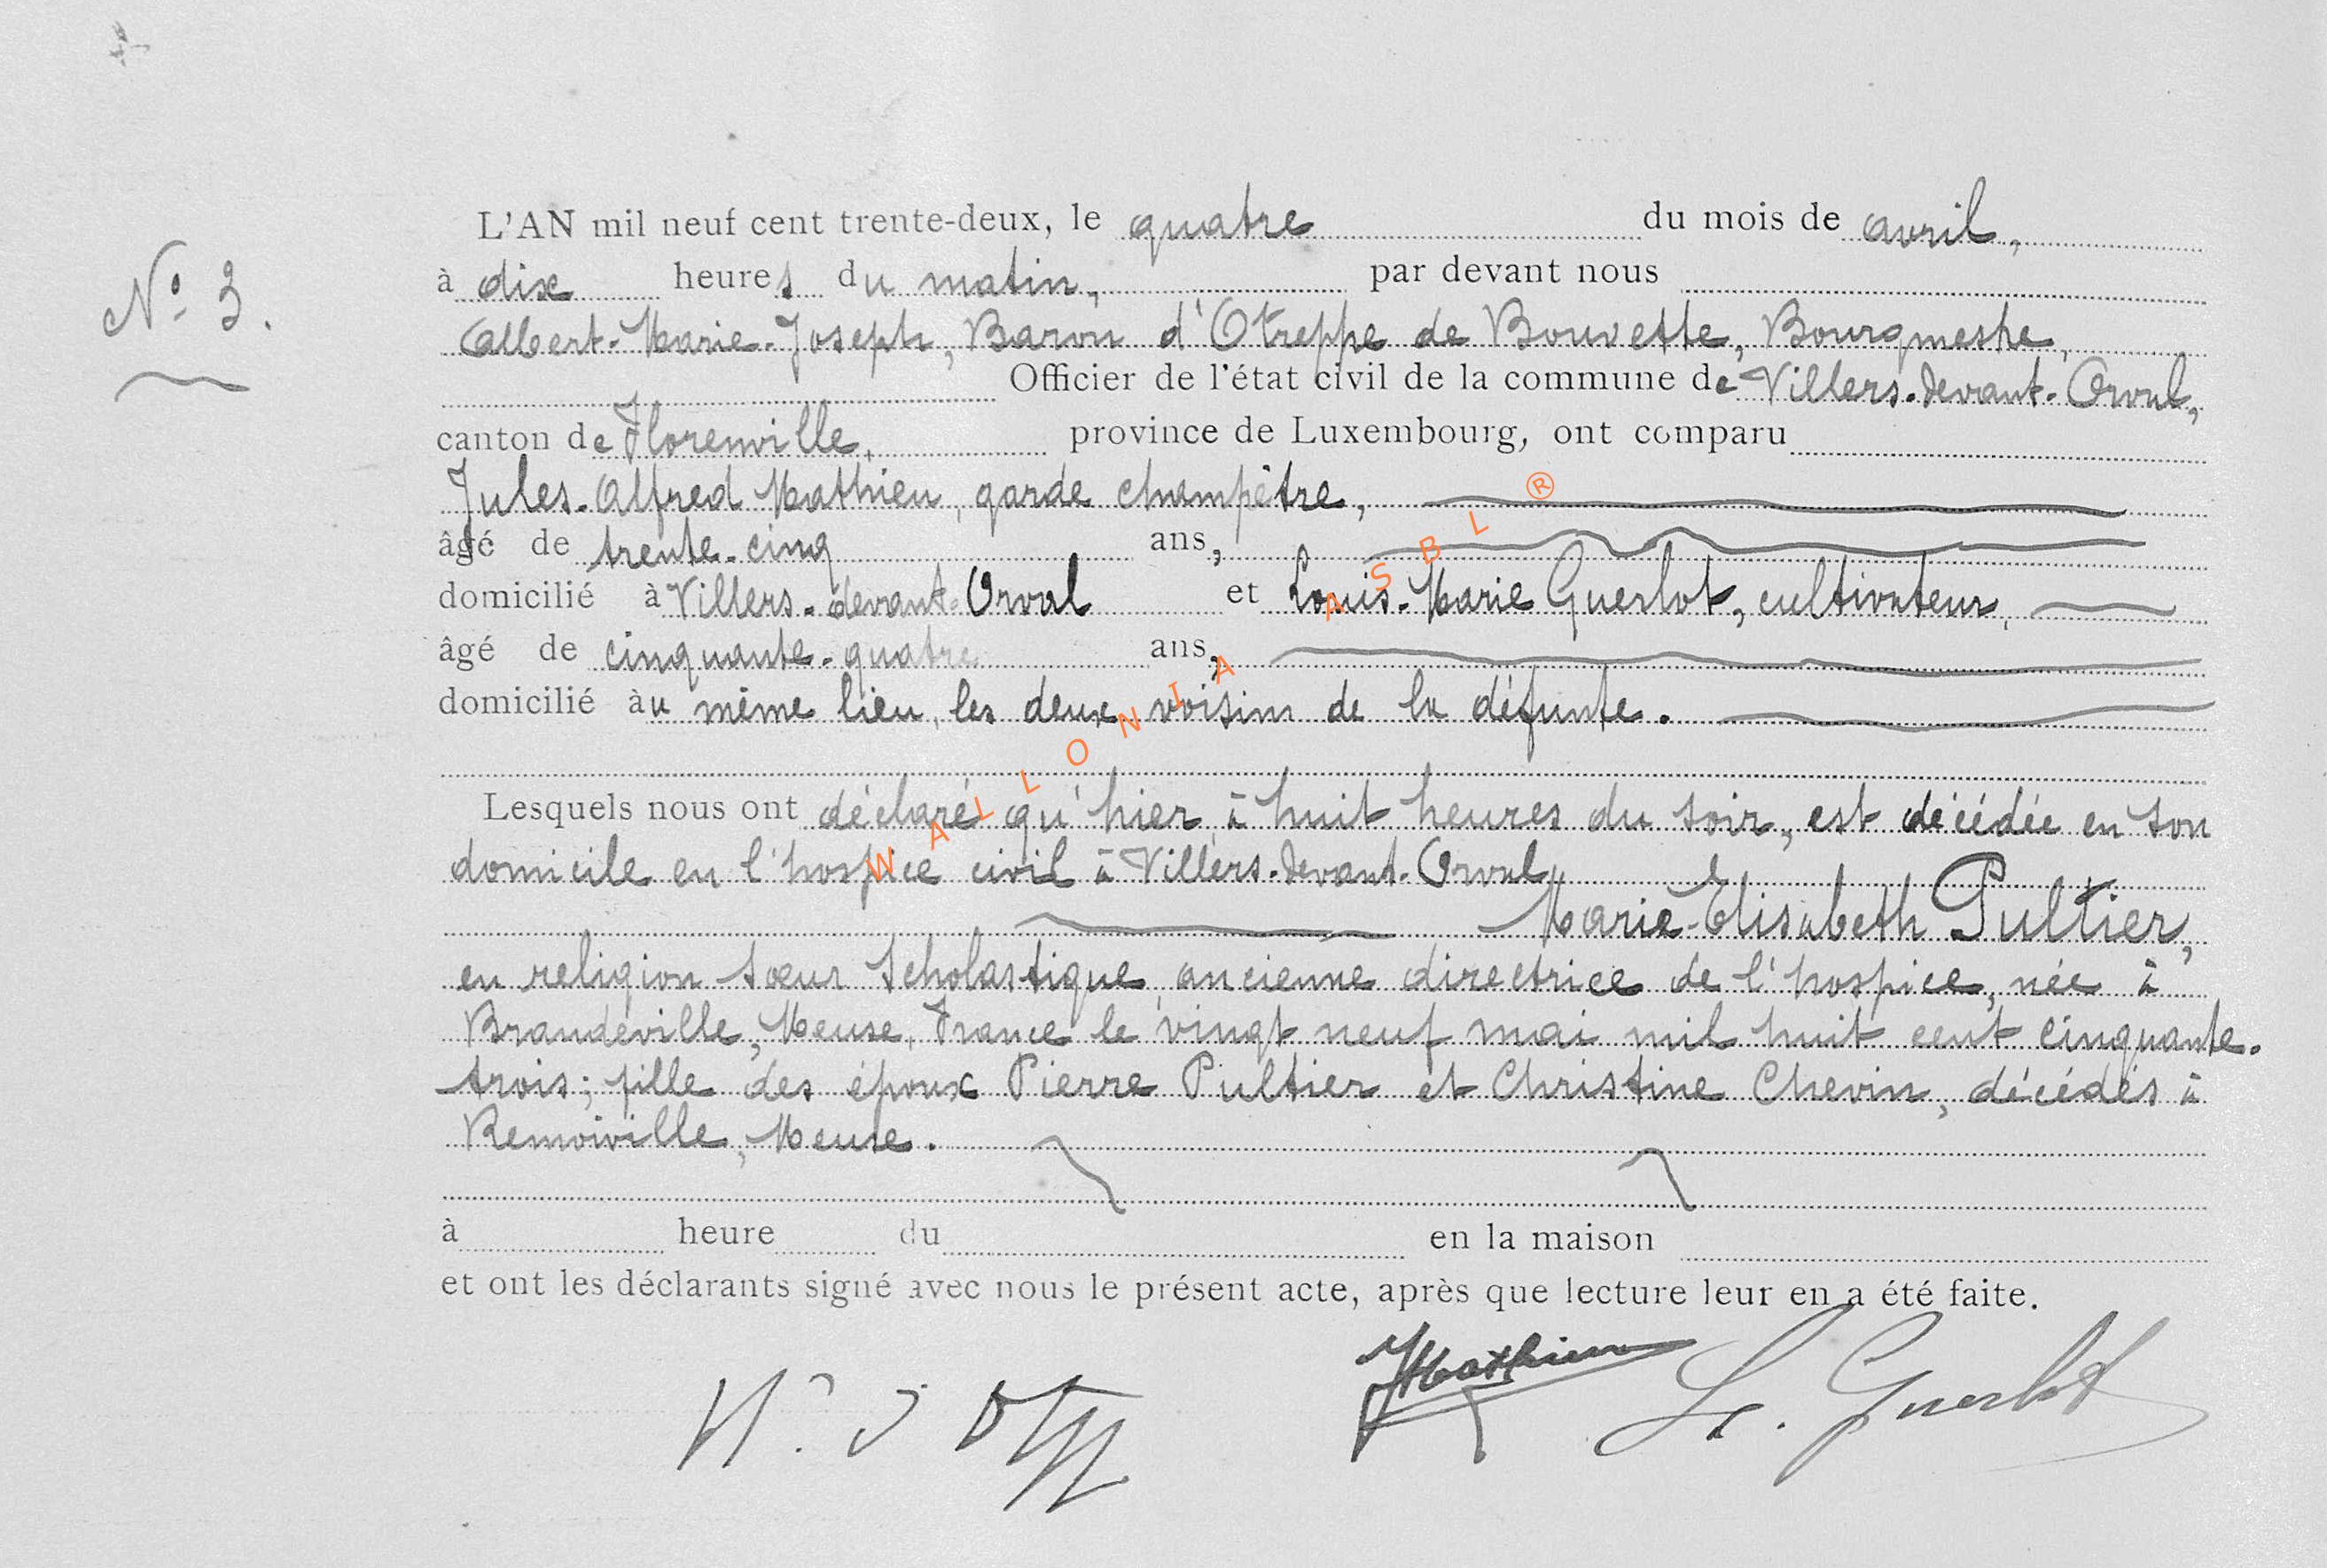 L'AN mil neuf cent trente-deux, le quatre du mois de avril,
N° 3.
à dix heures du matin, par devant nous
Albert-Marie-Joseph, Baron d'Otreppe de Bouvette, Bourgmestre,
Officier de l'état civil de la commune de Villers-devant-Orval,
canton de Florenville, province de Luxembourg, ont comparu
Jules-Alfred Mathieu, garde champêtre,
âgé de trente-cinq ans,
domicilié à Villers-devant-Orval et Louis-Marie Guerlot, cultivateur,
âgé de cinquante-quatre ans,
domicilié au même lieu, les deux voisins de la défunte.
Lesquels nous ont déclaré qu'hier, à huit heures du soir, est décédée en son
domicile en l'hospice civil à Villers-devant-Orval
Marie-Elisabeth Pultier,
en religion sœur Scholastique, ancienne directrice de l'hospice, née à
Brandeville, Meuse, France le vingt neuf mai mil huit cent cinquante-
trois; fille des époux Pierre Pultier et Christine Chevin, décédés à
Remoiville, Meuse.
à heure du en la maison
et ont les déclarants signé avec nous le présent acte, après que lecture leur en a été faite.
JMathieu L. Guerlot
WALLONIA ASBL ®